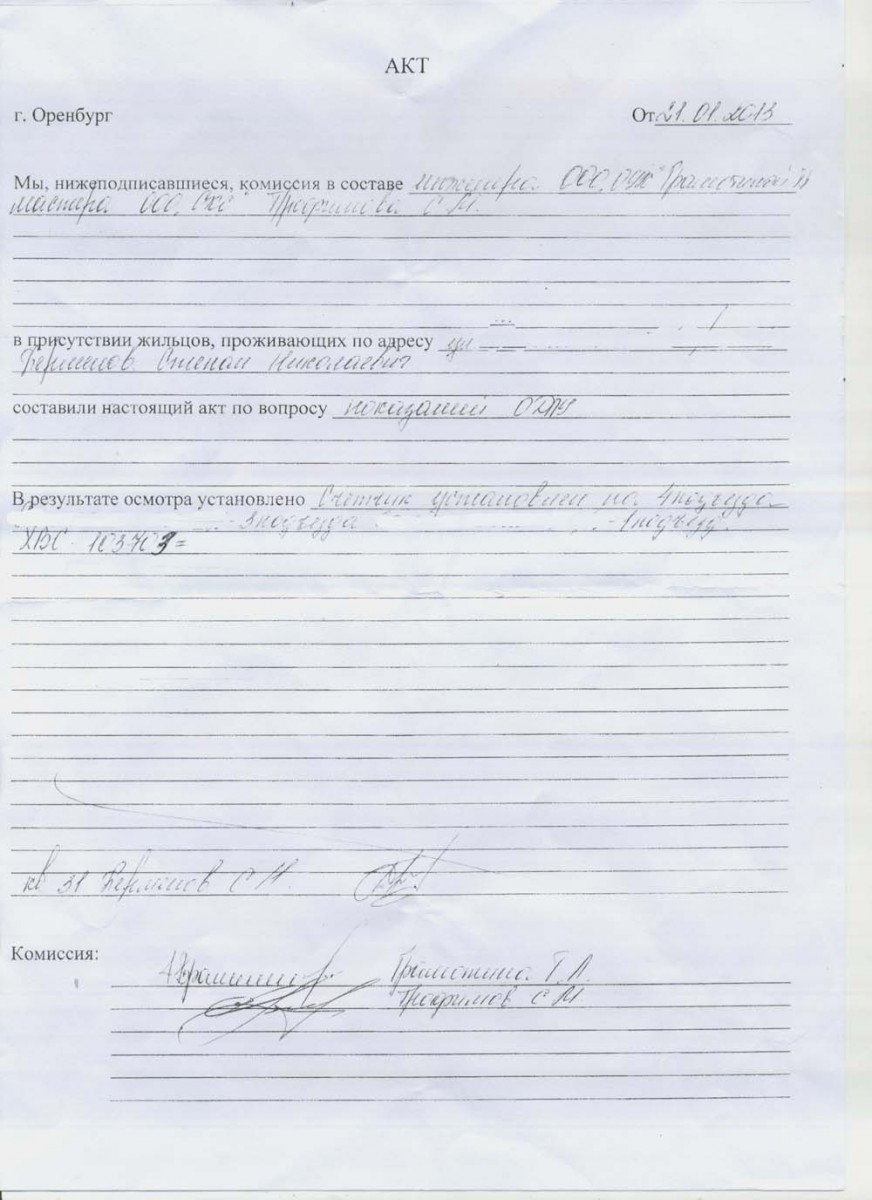 АКТ
г. Оренбург От 21.01.2013
Мы, нижеподписавшиеся, комиссия в составе инженера ООО
мастера ООО Трофимова С М.
в присутствии жильцов, проживающих по адресу ул
Степан Николаевич
составили настоящий акт по вопросу показаний ОДПУ
В результате осмотра установлено Счетчик установлен на 4 подъезда
3 подъезда - 1 подъезд.
ХВС - 103703 =
кв 31 С Н.
Комиссия: Грамоткина Т. Л.
Трофимов С М